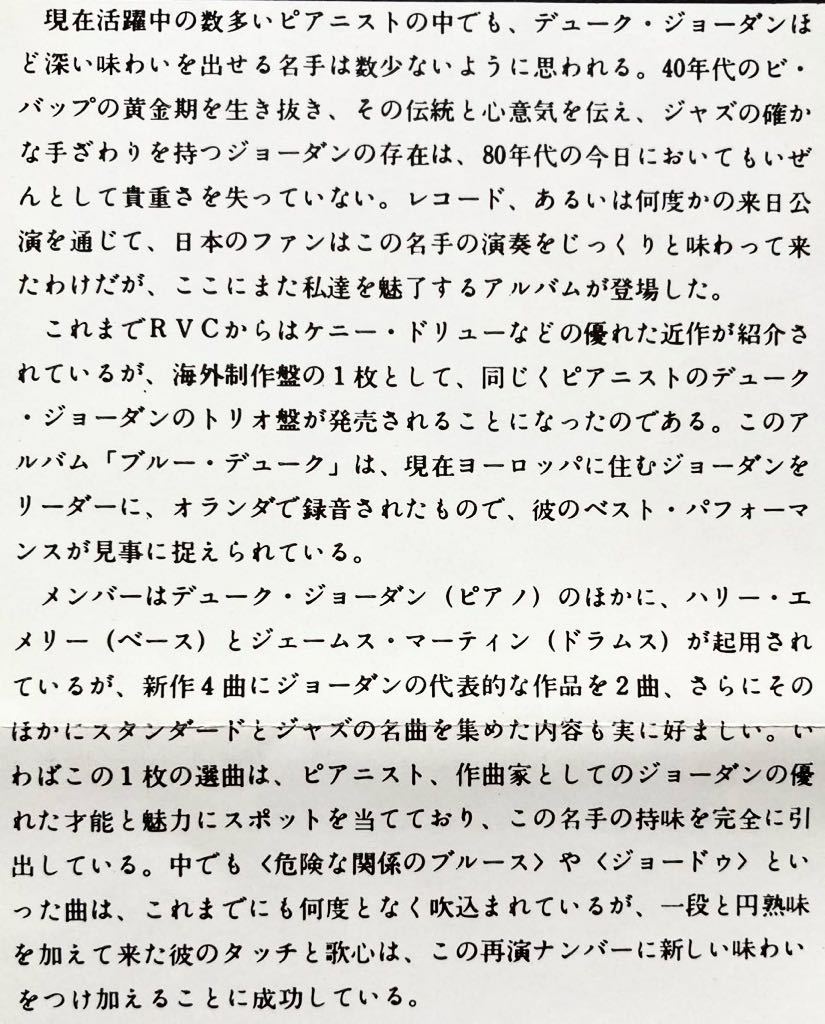 現在活躍中の数多いピアニストの中でも、デューク・ジョーダンほ
ど深い味わいを出せる名手は数少ないように思われる。40年代のビ・
バップの黄金期を生き抜き、その伝統と心意気を伝え、ジャズの確か
な手ざわりを持つジョーダンの存在は、80年代の今日においてもいぜ
んとして貴重さを失っていない。レコード、あるいは何度かの来日公
演を通じて、日本のファンはこの名手の演奏をじっくりと味わって来
たわけだが、ここにまた私達を魅了するアルバムが登場した。
これまでＲＶＣからはケニー・ドリューなどの優れた近作が紹介さ
れているが、海外制作盤の１枚として、同じくピアニストのデューク
・ジョーダンのトリオ盤が発売されることになったのである。このア
ルバム「ブルー・デューク」は、現在ヨーロッパに住むジョーダンを
リーダーに、オランダで録音されたもので、彼のベスト・パフォーマ
ンスが見事に捉えられている。
メンバーはデューク・ジョーダン（ピアノ）のほかに、ハリー・エ
メリー（ベース）とジェームス・マーティン（ドラムス）が起用され
ているが、新作４曲にジョーダンの代表的な作品を２曲、さらにその
ほかにスタンダードとジャズの名曲を集めた内容も実に好ましい。い
わばこの１枚の選曲は、ピアニスト、作曲家としてのジョーダンの優
れた才能と魅力にスポットを当てており、この名手の持味を完全に引
出している。中でも〈危険な関係のブルース〉や〈ジョードゥ〉とい
った曲は、これまでにも何度となく吹込まれているが、一段と円熟味
を加えて来た彼のタッチと歌心は、この再演ナンバーに新しい味わい
をつけ加えることに成功している。